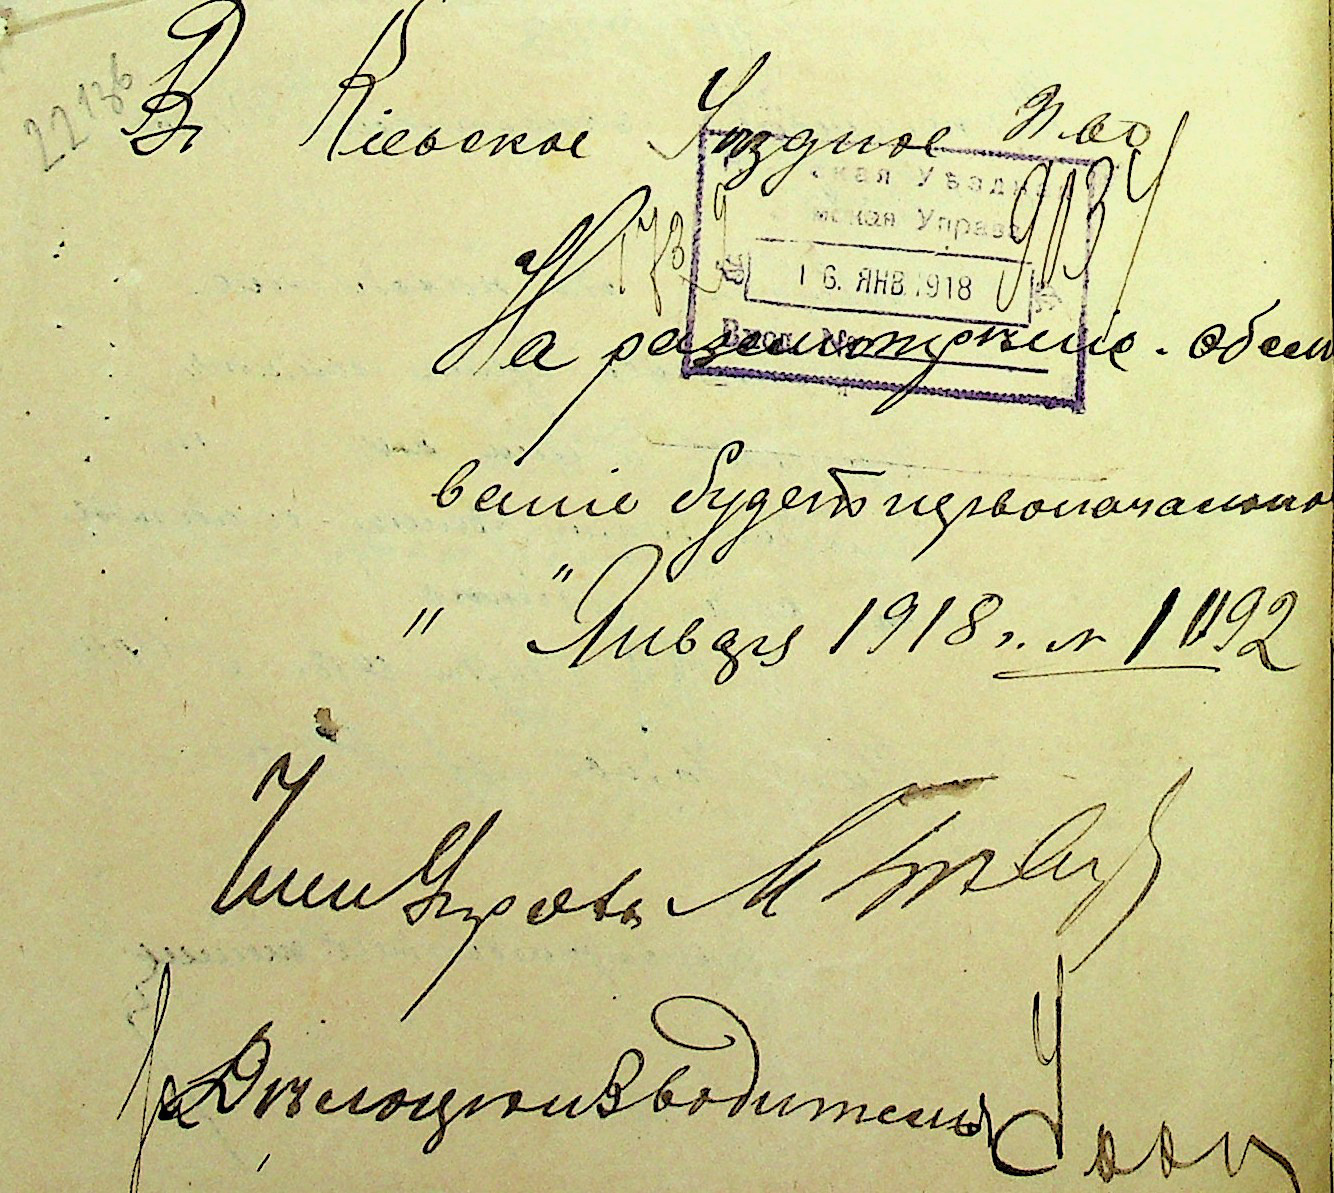 22136
Въ Кіевское Уѣздное П-во
кая Уѣздн
мская Управа
1739
9134
16. ЯНВ. 1918
Вход. №
На разсмотрѣніе. обсл
ваніе будетъ первоначально
" " Января 1918 г. № 11192
Член Управы М
Дѣлопроизводитель